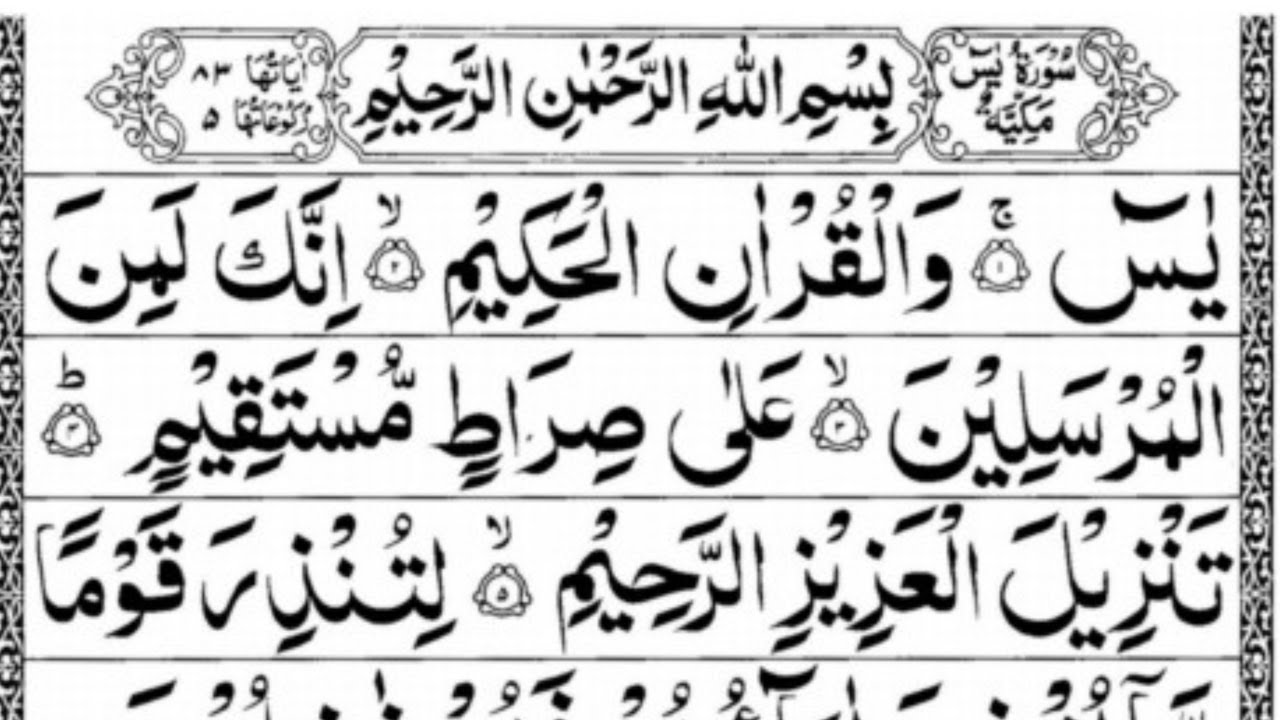 سُوْرَةُ يٰسٓ
مَكِّيَّةٌ
بِسْمِ اللّٰهِ الرَّحْمٰنِ الرَّحِيْمِ
اٰيَاتُهَا ٨٣
رُكُوْعَاتُهَا ٥
يٰسٓ ۚ‏﴿١﴾ وَالْقُرْاٰنِ الْحَكِيْمِ ۙ‏﴿٢﴾ اِنَّكَ لَمِنَ
الْمُرْسَلِيْنَ ۙ‏﴿٣﴾ عَلٰى صِرَاطٍ مُّسْتَقِيْمٍ ؕ‏﴿٤﴾
تَنْزِيْلَ الْعَزِيْزِ الرَّحِيْمِ ۙ‏﴿٥﴾ لِتُنْذِرَ قَوْمًا